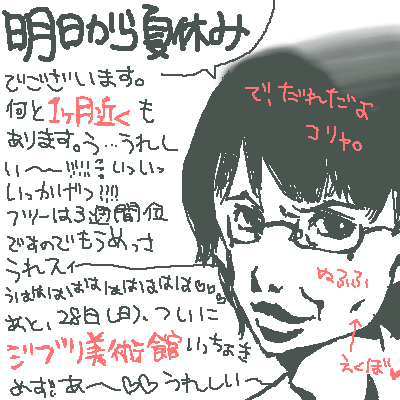 明日から夏休み
でございます。
何と1ヶ月近くも
あります。う…うれし
い～～!!!!! いっいっ
いっかげつ!!!
フツーは3週間位
ですのでもうめっさ
うれスィー
うはははははははははは
あと、28日(日)、ついに
ジブリ美術館いっちょき
めずぁあ～♡♡うれしい～
で、だれだよ
コリャ。
ぬふふ
えくぼ♥